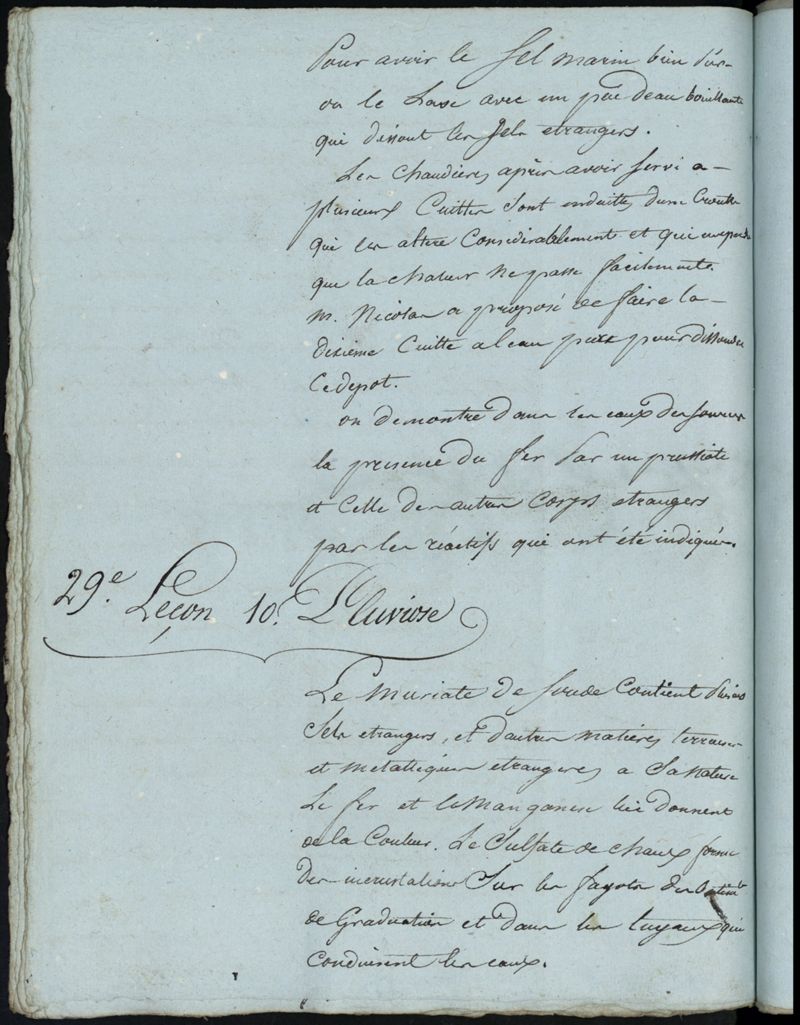 Pour avoir le Sel marin bien pur
on le Lave avec un peu deau bouillante
qui dissout les Sels etrangers.
Les Chaudieres après avoir Servi a
plusieurs Cuittes Sont enduittes dune Croute
qui les altere Considérablement et qui empeche
que la chaleur ne passe facilement.
m. Nicolas a proposé de faire la
dixième Cuitte a leau pure pour dissoudre
Ce depot.
on demontre dans les eaux des sources
la presence du fer Par un prussiate
et Celle des autres Corps etrangers
par les réactifs qui ont été indiqués.
29.e Leçon 10. Pluviose
Le muriate de soude Contient plusieurs
Sels etrangers, et dautres matieres terreuses
et metalliques etrangeres a Sa Nature
Le fer et le Manganese lui donnent
de la Couleur. Le Sulfate de chaux forme
des incrustations Sur les fagots des batimts
de Graduation et dans les tuyaux qui
conduisent les eaux.